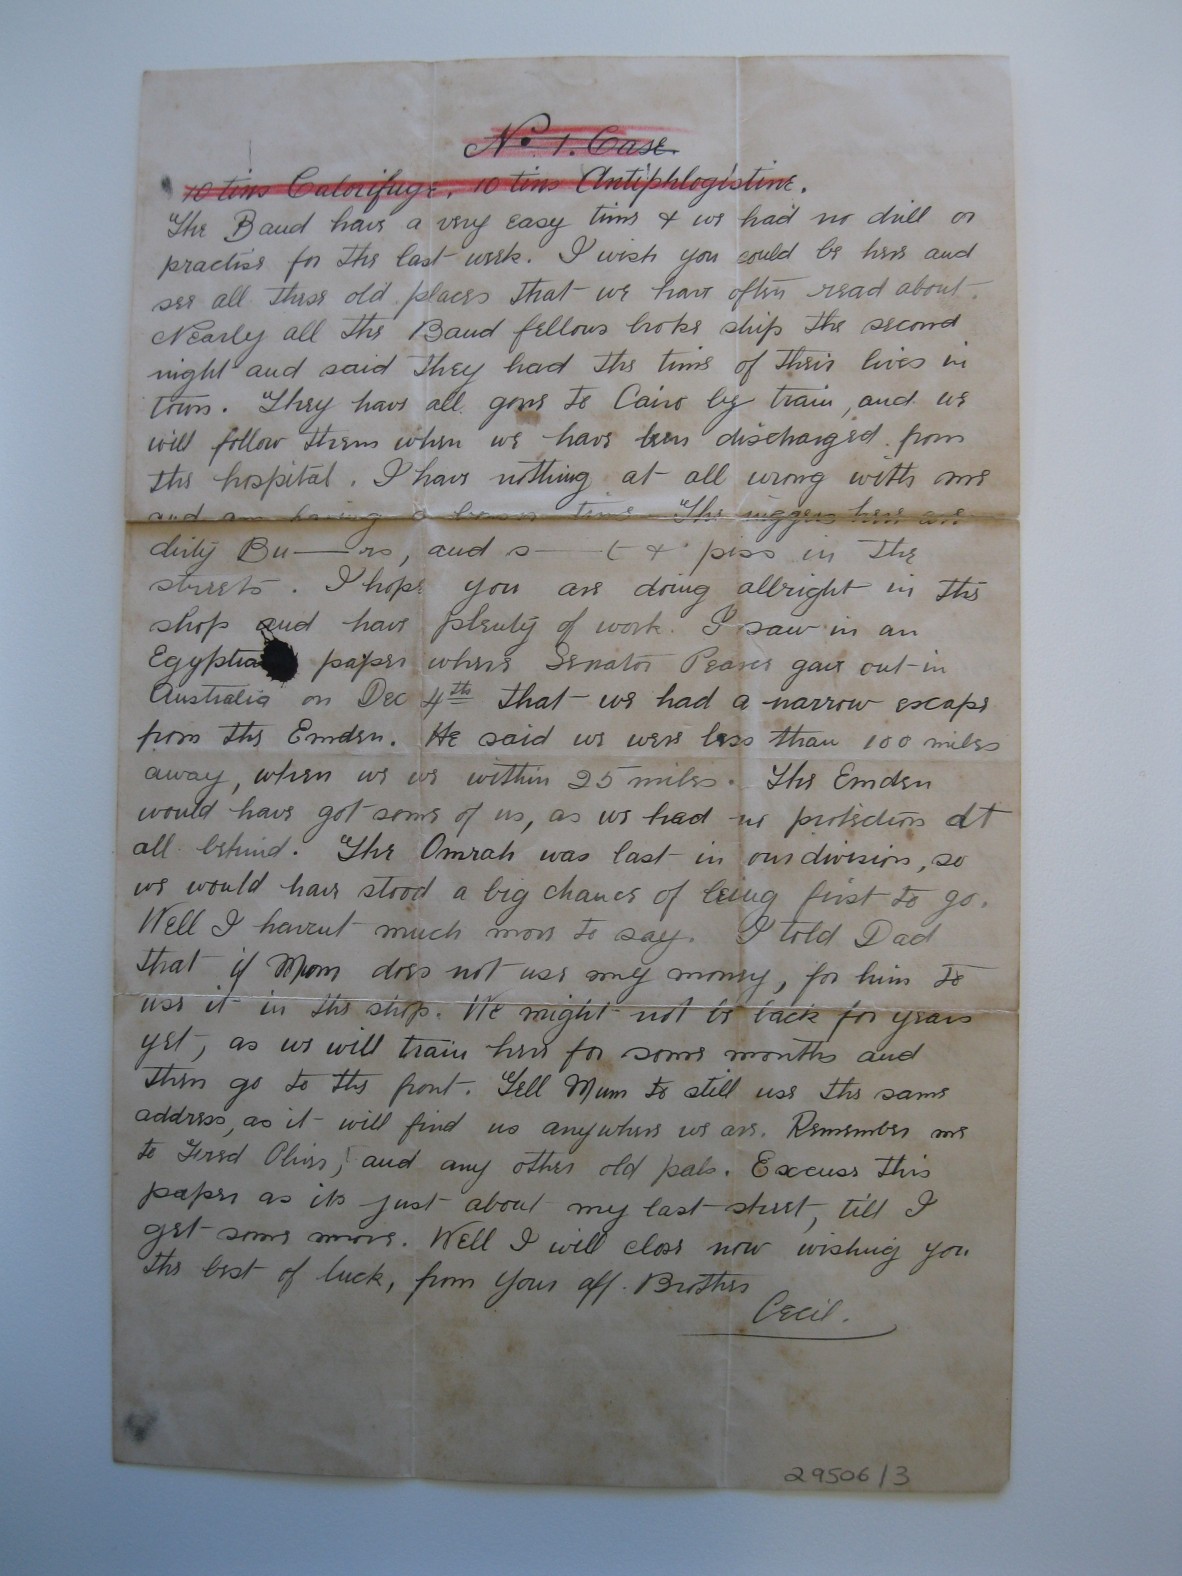 No. 1. Case.
10 tins Calorifuge. 10 tins Antiphlogistine.
The Band have a very easy time & we had no drill or
practise for the last week. I wish you could be here and
see all these old places that we have often read about.
Nearly all the Band fellows broke ship the second
night and said they had the time of their lives in
town. They have all gone to Cairo by train, and we
will follow them when we have been discharged from
the hospital. I have nothing at all wrong with me
and am having a time. The niggers here are
dirty Bu——rs, and s——t & piss in the
streets. I hope you are doing allright in the
shop and have plenty of work. I saw in an
Egyptian paper where Senator Pearce gave out in
Australia on Dec 4th that we had a narrow escape
from the Emden. He said we were less than 100 miles
away, when we we within 25 miles. The Emden
would have got some of us, as we had no protection at
all behind. The Omrah was last in our division, so
we would have stood a big chance of being first to go.
Well I havent much more to say. I told Dad
that if Mum does not use my money, for him to
use it in the shop. We might not be back for years
yet, as we will train here for some months and
then go to the front. Tell Mum to still use the same
address, as it will find us anywhere we are. Remember me
to Fred Oliver, and any other old pals. Excuse this
paper as its just about my last sheet, till I
get some more. Well I will close now wishing you
the best of luck, from your aff. Brother
Cecil.
29506/3